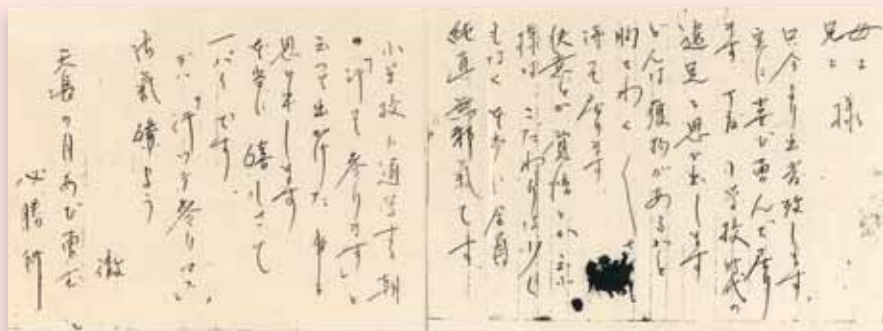 母上様
兄上
只今より出発致します。
実に喜び勇んで居り
ます 丁度 小学校時代の
遠足を思ひ出します
どんな獲物があるかと
胸をわく〳〵
させて居ります。
決意とか覚悟とか云ふ
様な こだわりは少しも
なく 本当に全員
純真無邪気です。
小学校に通学する朝
「行って参ります」と
云って出かけた事を
思ひ出します
本当に嬉しさで
一パイです。
デハ「行ッテ参リマス」
御機嫌よう
徹
天長の月あび乍ら
必勝